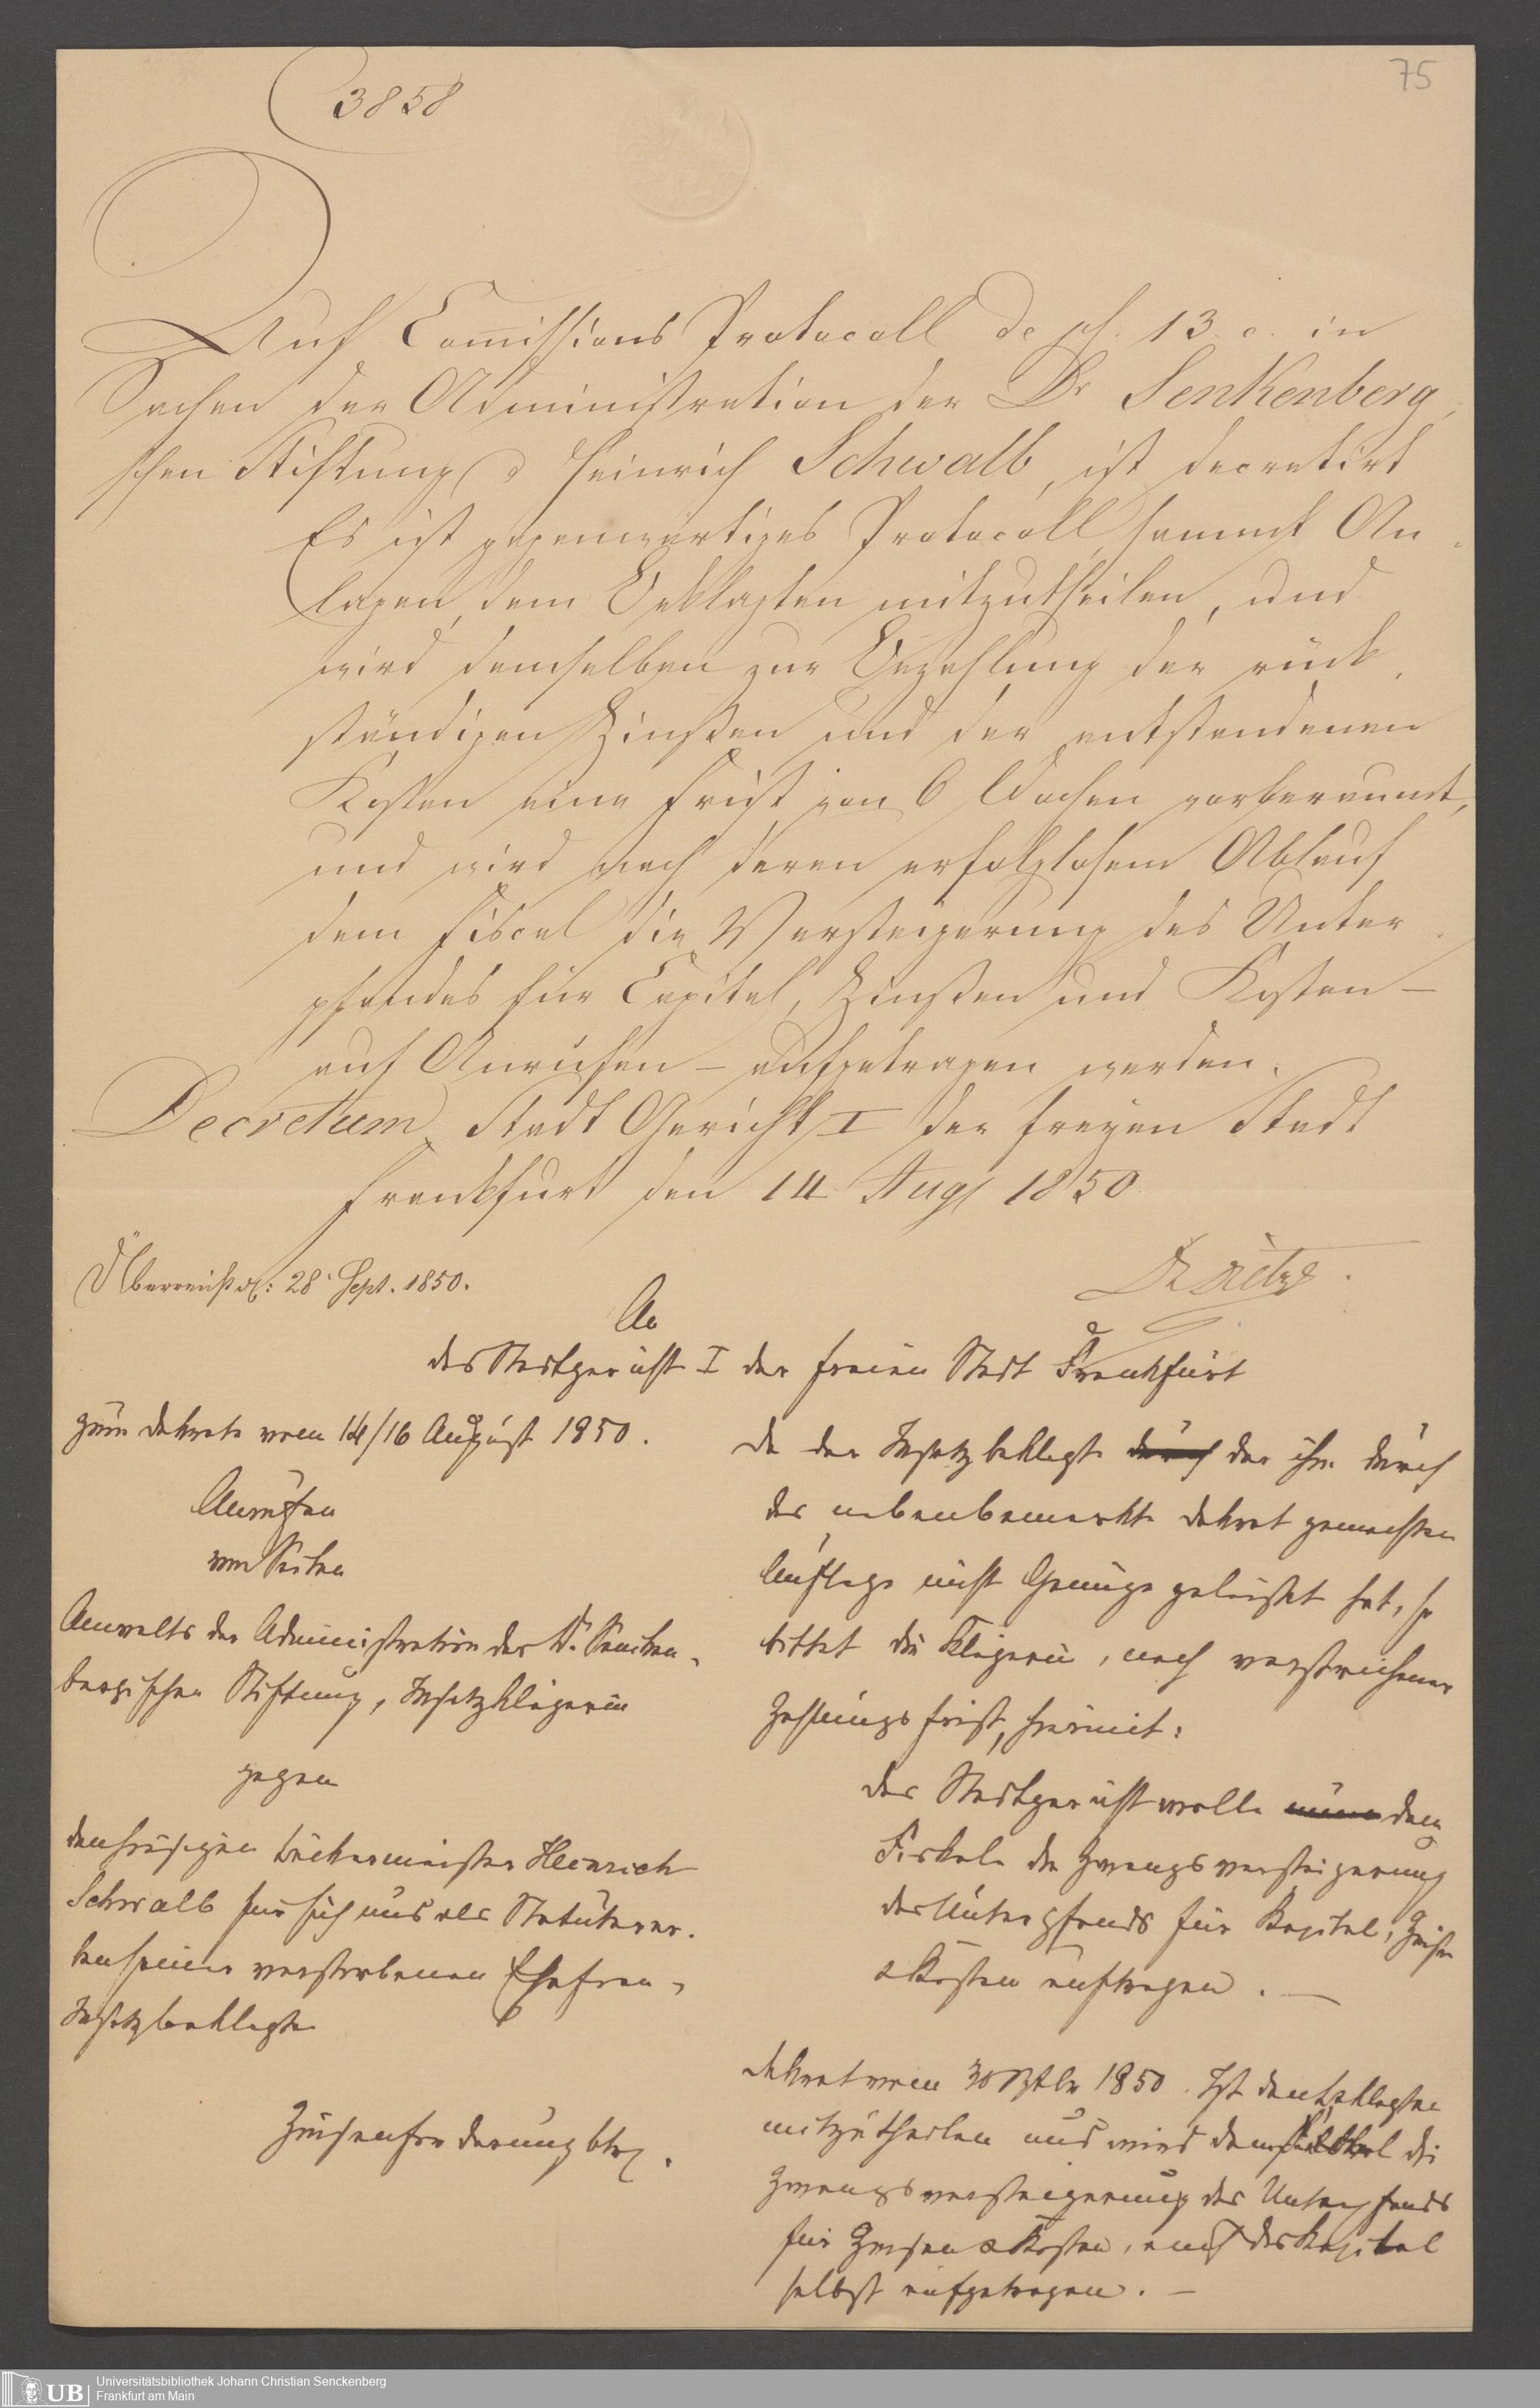 75
3858
Auf Comissions Protocoll de pf. 13. c. in
Sachen der Administration der Dr Senkenberg,
schen Stiftung d Heinrich Schwalb, ist decretirt
Es ist gegenwärtiges Protocoll, sammt An
lagen, dem Beklagten mitzutheilen, und
wird demselben zur Bezahlung der rück,
ständigen Zinßen und der entstandenen
Kosten eine Frist von 6 Wochen vorberaumt,
und wird nach deren erfolglosem Ablauf
dem Fiscal die Versteigerung des Unter
pfandes für Capital, Zinßen und Kosten –
auf Anrufen – aufgetragen werden.
Decretum, Stadt Gericht I der freyen Stadt
Frankfurt den 14 Augs 1850
Überreicht d: 28t Sept. 1850.
An
das Stadtgericht I der freien Stadt Frankfurt
zum Dekrete vom 14/16 August 1850.
Anrufen
von Seiten
Anwalts der Administration der Dr. Sencken,
bergischen Stiftung, Insatzklägerin
gegen
den hiesigen Bäckermeister Heinrich
Schwalb für sich und als Statutarer,
ben seiner verstorbenen Ehefrau,
Insatzbeklagte
Zinsenforderung btr.
Da der Insatzbeklagte durch der ihm durch
das nebenbemerkte Dekret gemachten
Auflage nicht Genüge geleistet hat, so
bittet die Klägerin, nach verstrichener
Zahlungsfrist, hiermit:
das Stadtgericht wolle nun dem
Fiskale die Zwangsversteigerung
des Unterpfands für Kapital, Zinsen
& Kosten auftragen. —
Dekret vom 30 Sptbr 1850. Ist dem Beklagten
mitzutheilen und wird dem Fiskal die
Zwangsversteigerung des Unterpfands
für Zinsen & Kosten, auch das Kapital
selbst aufgetragen. –
UB
Universitätsbibliothek Johann Christian Senckenberg
Frankfurt am Main